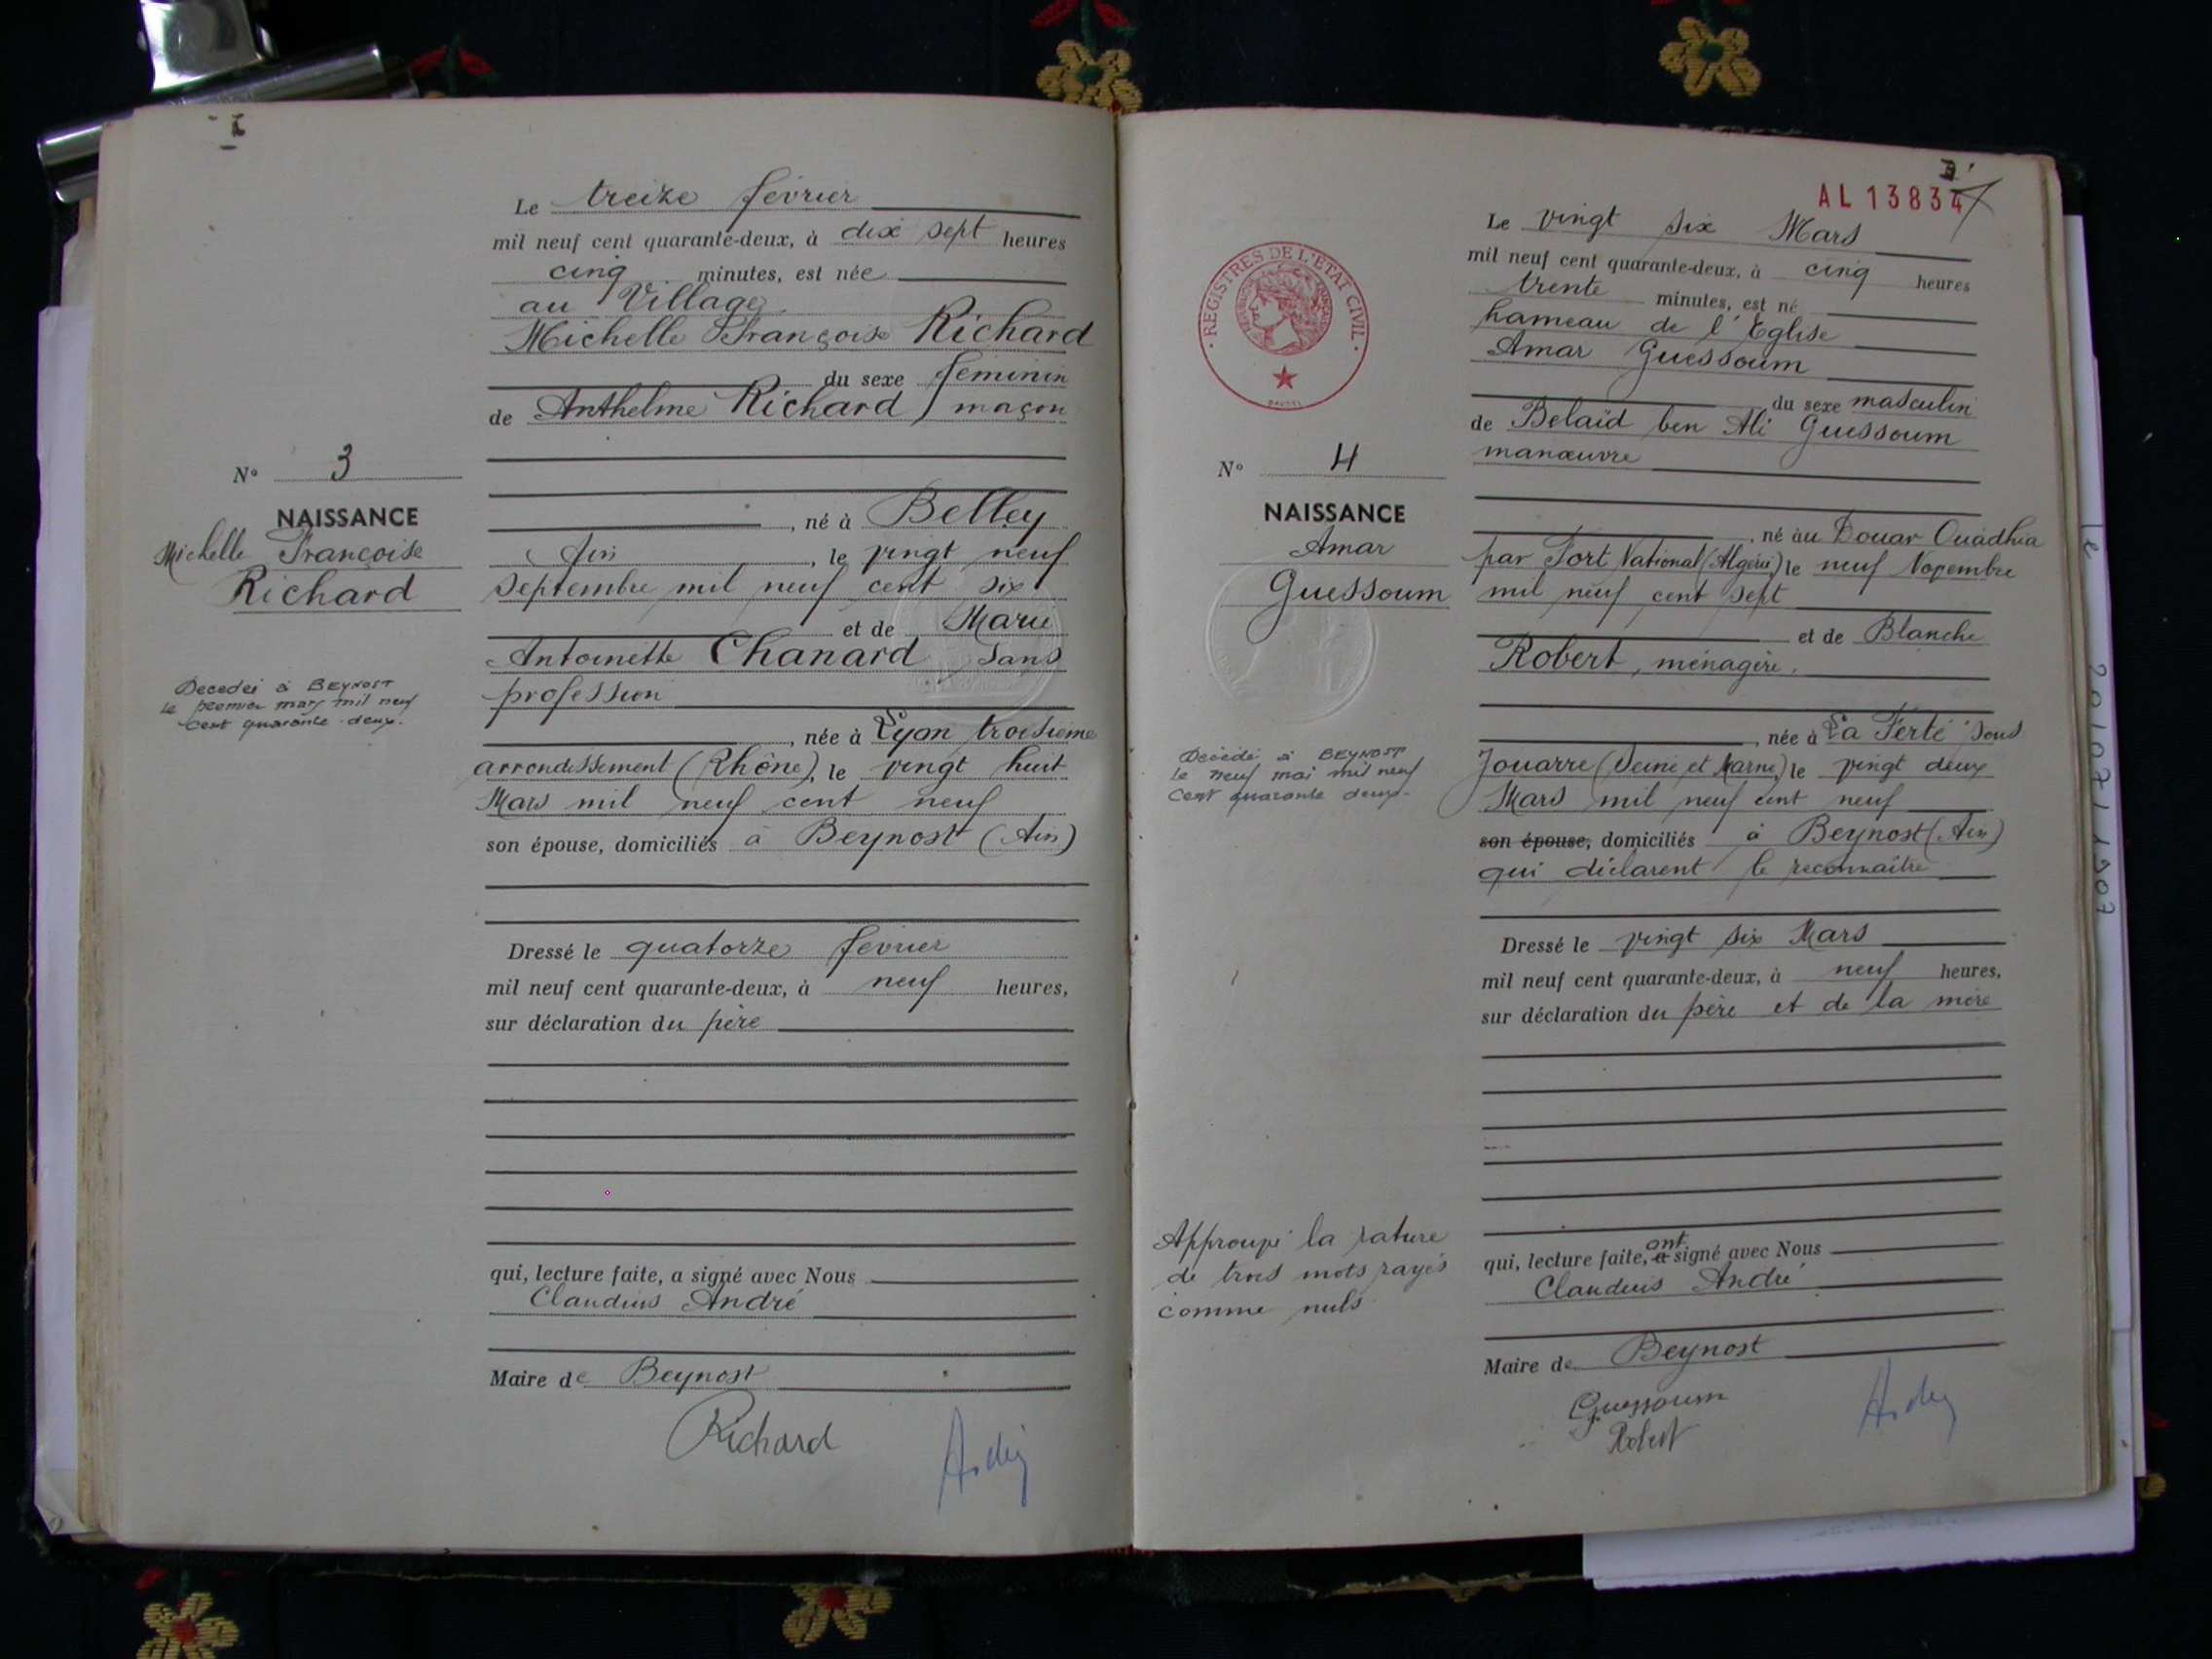 Le treize février
mil neuf cent quarante-deux, à dix sept heures
cinq minutes, est née
au Village
Michelle Françoise Richard
du sexe féminin
de Anthelme Richard maçon
N° 3
NAISSANCE
Michelle Françoise
Richard
, né à Belley
Ain, le vingt neuf
septembre mil neuf cent six
et de Marie
Antoinette Chanard sans
profession
Décédée à BEYNOST
le premier mars mil neuf
cent quarante-deux.
, née à Lyon troisième
arrondissement (Rhône), le vingt huit
Mars mil neuf cent neuf
son épouse, domiciliés à Beynost (Ain)
Dressé le quatorze février
mil neuf cent quarante-deux, à neuf heures,
sur déclaration du père
qui, lecture faite, a signé avec Nous
Claudius André
Maire de Beynost
Richard
AL 13834
REGISTRES DE L'ETAT CIVIL
Le vingt six Mars
mil neuf cent quarante-deux, à cinq heures
trente minutes, est né
hameau de l'Eglise
Amar Guessoum
du sexe masculin
de Belaïd ben Ali Guessoum
manœuvre
N° 4
NAISSANCE
Amar
Guessoum
, né au Douar Ouadhia
par Fort National (Algérie) le neuf Novembre
mil neuf cent sept
et de Blanche
Robert, ménagère.
Décédé à BEYNOST
le neuf mai mil neuf
cent quarante deux.
, née à La Ferté sous
Jouarre (Seine et Marne) le vingt deux
Mars mil neuf cent neuf
son épouse, domiciliés à Beynost (Ain)
qui déclarent le reconnaître
Dressé le vingt six Mars
mil neuf cent quarante-deux, à neuf heures,
sur déclaration du père et de la mère
Approuvé la rature
de trois mots rayés
comme nuls
qui, lecture faite, a ont signé avec Nous
Claudius André
Maire de Beynost
Guessoum
Robert